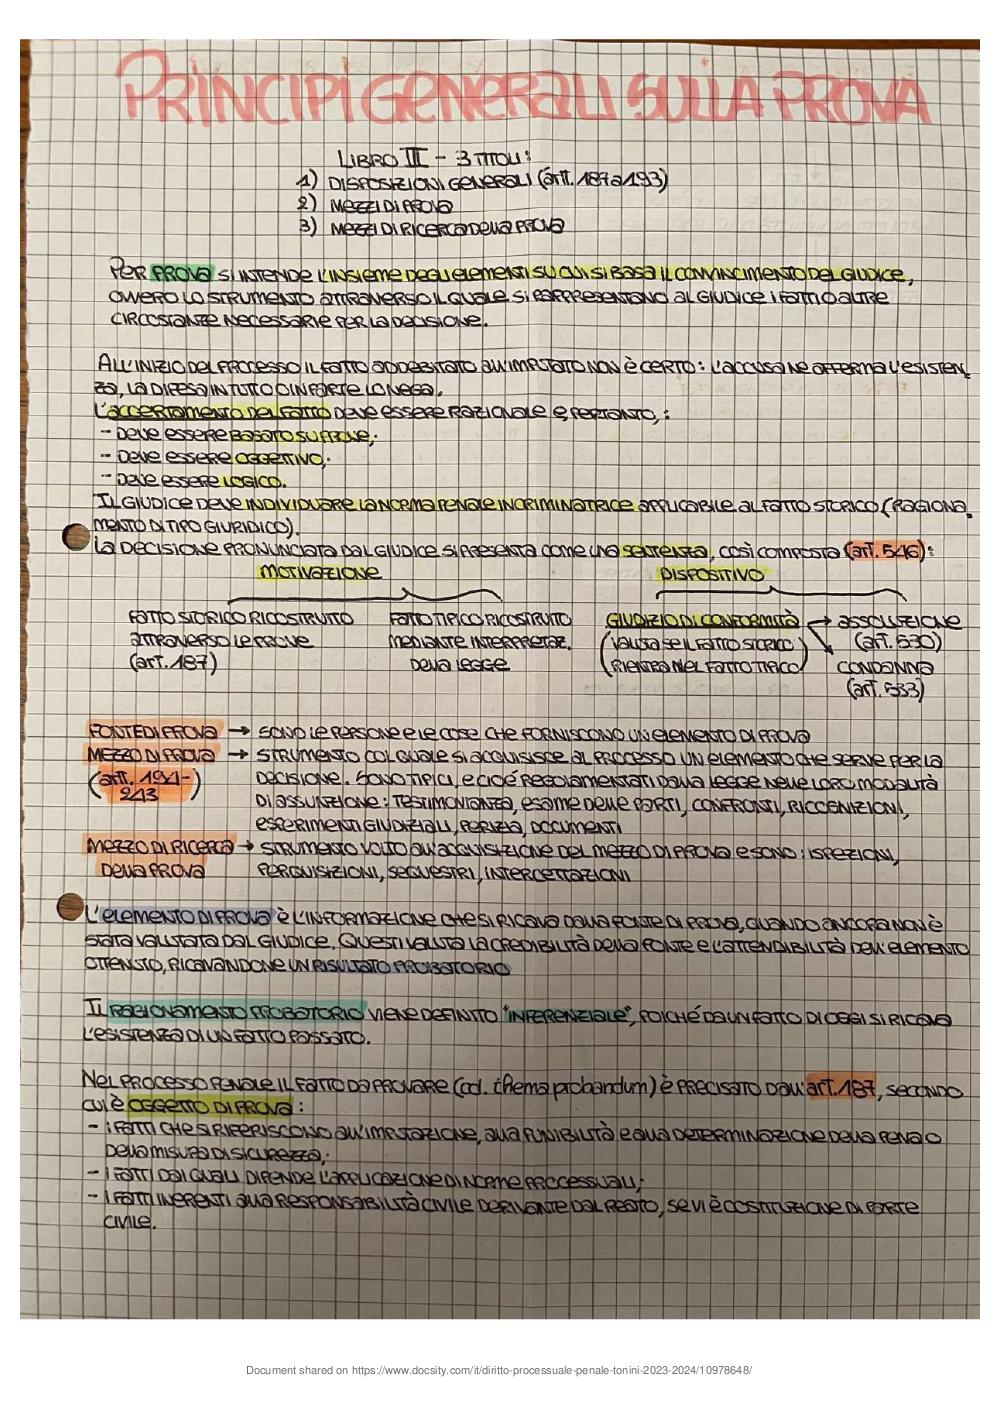 PRINCIPI GENERALI SULLA PROVA
LIBRO III - 3 TITOLI:
1) DISPOSIZIONI GENERALI (artt. 187 a 193)
2) MEZZI DI PROVA
3) MEZZI DI RICERCA DELLA PROVA
PER PROVA SI INTENDE L'INSIEME DEGLI ELEMENTI SU CUI SI BASA IL CONVINCIMENTO DEL GIUDICE,
OVVERO LO STRUMENTO ATTRAVERSO IL QUALE SI RAPPRESENTANO AL GIUDICE I FATTI O ALTRE
CIRCOSTANZE NECESSARIE PER LA DECISIONE.
ALL'INIZIO DEL PROCESSO IL FATTO ADDEBITATO ALL'IMPUTATO NON È CERTO: L'ACCUSA NE AFFERMA L'ESISTEN
ZA, LA DIFESA IN TUTTO O IN PARTE LO NEGA.
L'ACCERTAMENTO DEL FATTO DEVE ESSERE RAZIONALE E, PERTANTO,:
- DEVE ESSERE BASATO SU PROVE;
- DEVE ESSERE OGGETTIVO;
- DEVE ESSERE LOGICO.
IL GIUDICE DEVE INDIVIDUARE LA NORMA PENALE INCRIMINATRICE APPLICABILE AL FATTO STORICO (RAGIONA
MENTO DI TIPO GIURIDICO).
LA DECISIONE PRONUNCIATA DAL GIUDICE SI PRESENTA COME UNA SENTENZA, COSÌ COMPOSTA (art. 546):
MOTIVAZIONE DISPOSITIVO
FATTO STORICO RICOSTRUITO FATTO TIPICO RICOSTRUITO GIUDIZIO DI CONFORMITÀ → ASSOLUZIONE
ATTRAVERSO LE PROVE MEDIANTE INTERPRETAZ. (VALUTA SE IL FATTO STORICO (art. 530)
(art. 187) DELLA LEGGE RIENTRA NEL FATTO TIPICO) CONDANNA
(art. 533)
FONTE DI PROVA → SONO LE PERSONE E LE COSE CHE FORNISCONO UN ELEMENTO DI PROVA
MEZZO DI PROVA → STRUMENTO COL QUALE SI ACQUISISCE AL PROCESSO UN ELEMENTO CHE SERVE PER LA
(artt. 194- DECISIONE. SONO TIPICI, E CIOÈ REGOLAMENTATI DALLA LEGGE NELLE LORO MODALITÀ
243) DI ASSUNZIONE: TESTIMONIANZA, ESAME DELLE PARTI, CONFRONTI, RICOGNIZIONI,
ESPERIMENTI GIUDIZIALI, PERIZIA, DOCUMENTI
MEZZO DI RICERCA → STRUMENTO VOLTO ALL'ACQUISIZIONE DEL MEZZO DI PROVA E SONO: ISPEZIONI,
DELLA PROVA PERQUISIZIONI, SEQUESTRI, INTERCETTAZIONI
L'ELEMENTO DI PROVA È L'INFORMAZIONE CHE SI RICAVA DALLA FONTE DI PROVA, QUANDO ANCORA NON È
STATA VALUTATA DAL GIUDICE. QUESTI VALUTA LA CREDIBILITÀ DELLA FONTE E L'ATTENDIBILITÀ DELL'ELEMENTO
OTTENUTO, RICAVANDONE UN RISULTATO PROBATORIO
IL RAGIONAMENTO PROBATORIO VIENE DEFINITO "INFERENZIALE", POICHÉ DA UN FATTO DI OGGI SI RICAVA
L'ESISTENZA DI UN FATTO PASSATO.
NEL PROCESSO PENALE IL FATTO DA PROVARE (cd. thema probandum) È PRECISATO DALL'art. 187, SECONDO
CUI È OGGETTO DI PROVA:
- I FATTI CHE SI RIFERISCONO ALL'IMPUTAZIONE, ALLA PUNIBILITÀ E ALLA DETERMINAZIONE DELLA PENA O
DELLA MISURA DI SICUREZZA;
- I FATTI DAI QUALI DIPENDE L'APPLICAZIONE DI NORME PROCESSUALI;
- I FATTI INERENTI ALLA RESPONSABILITÀ CIVILE DERIVANTE DAL REATO, SE VI È COSTITUZIONE DI PARTE
CIVILE.
Document shared on https://www.docsity.com/it/diritto-processuale-penale-tonini-2023-2024/10978648/